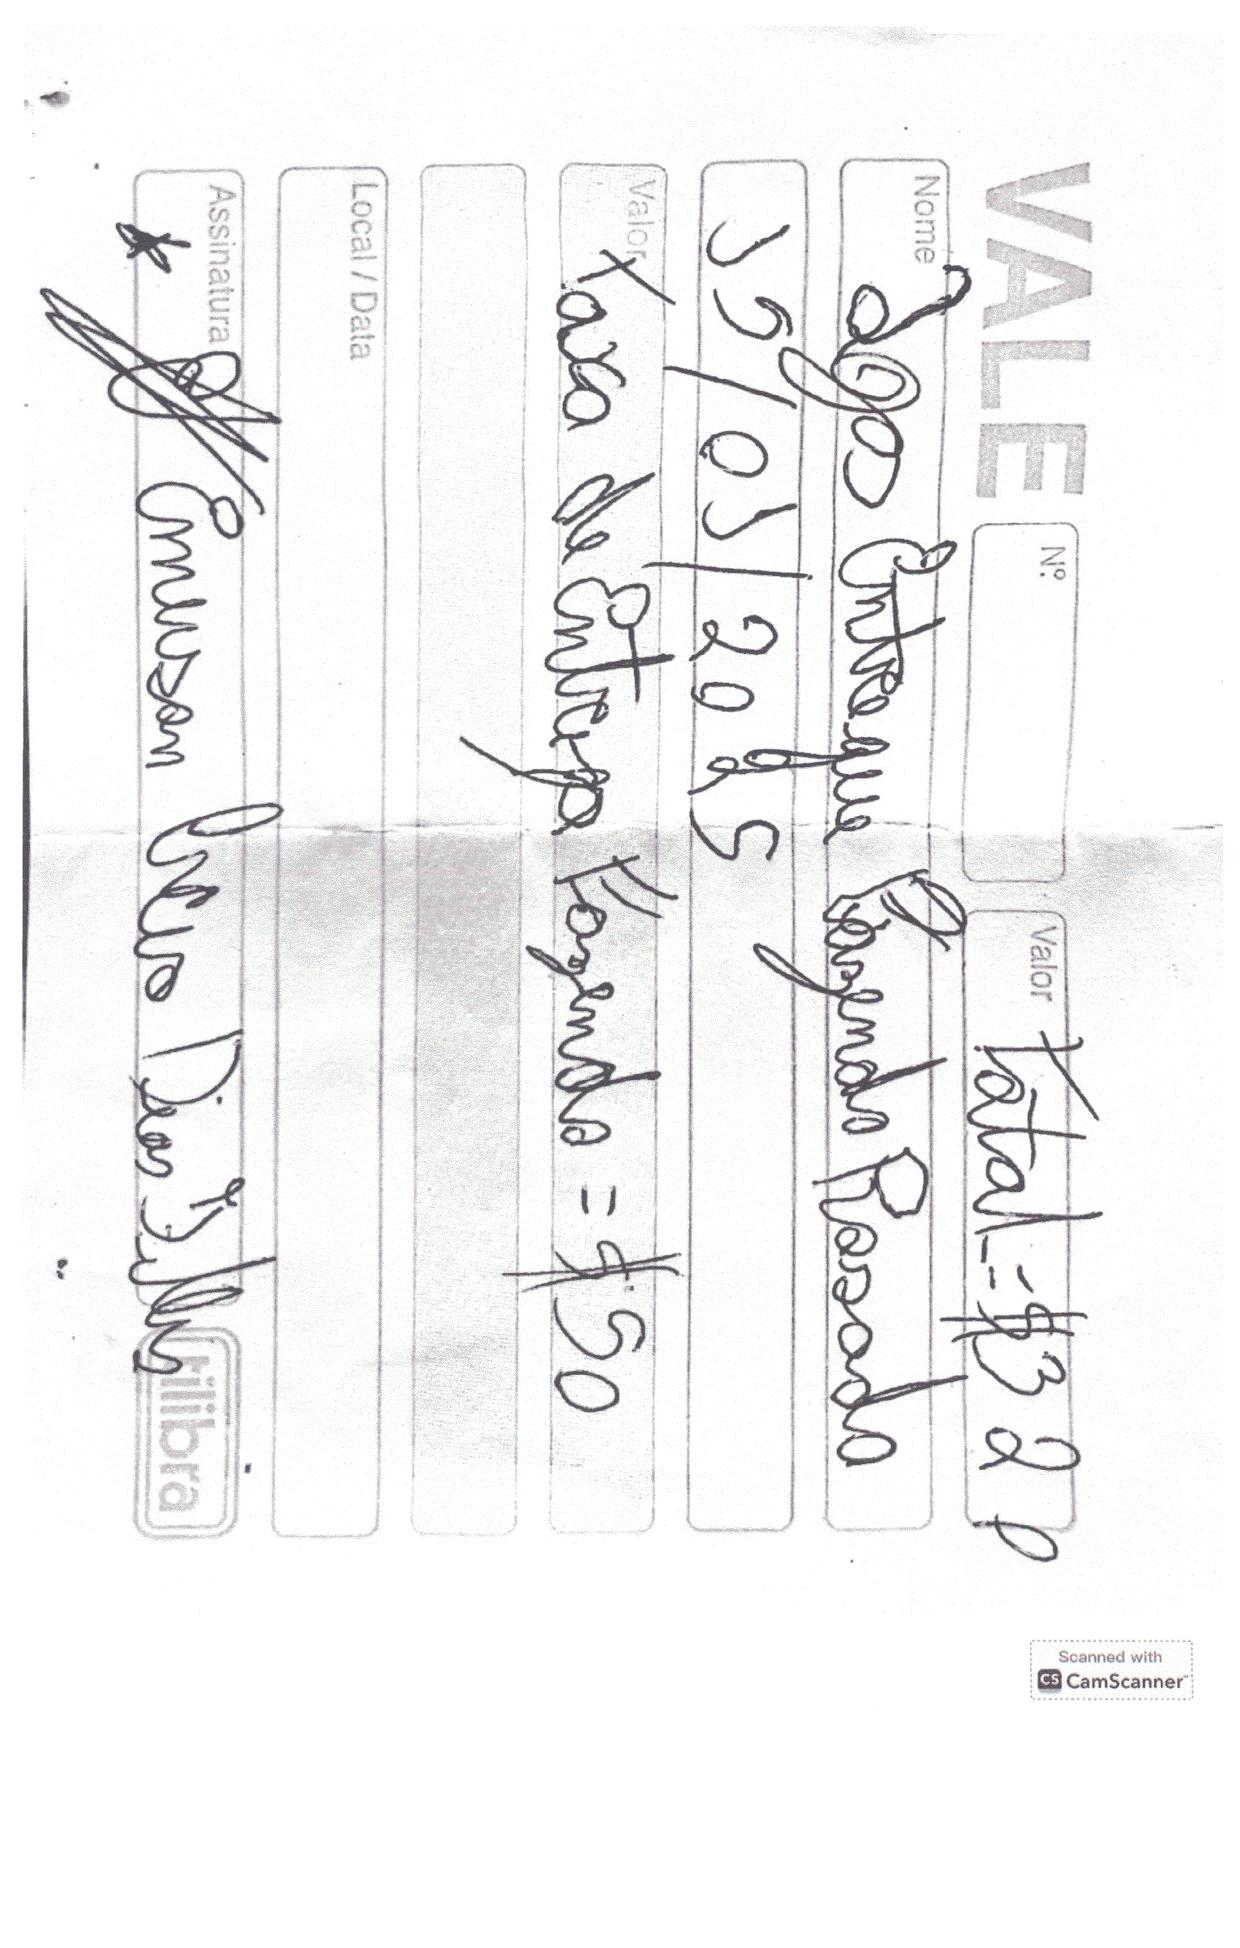 VALE Nº Valor Total = $320
Nome Jogo Entregue Fazenda Rosado
15/01/2025
Valor Taxa de Entrega Fazenda = $50
Local / Data
Assinatura Emerson Dias
tilibra
Scanned with
CS CamScanner